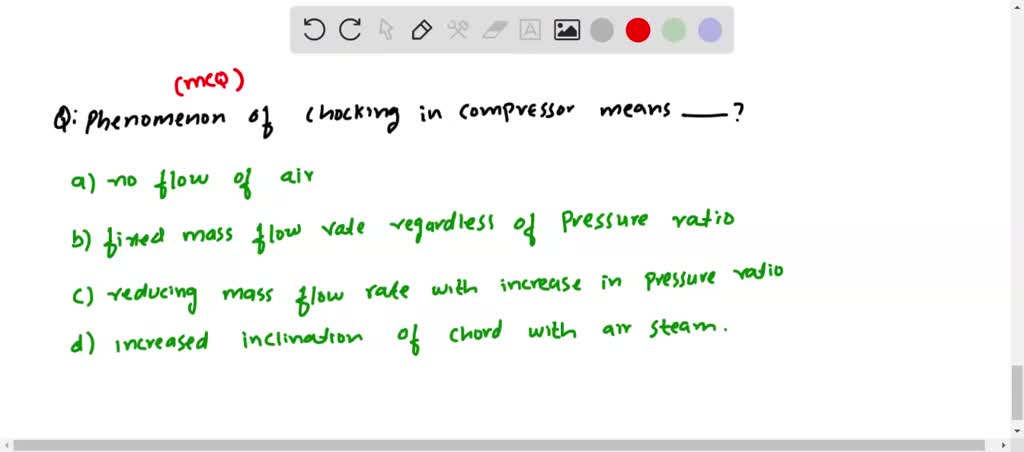 (mcQ)
Q: Phenomenon of chocking in compressor means ___?
a) no flow of air
b) fixed mass flow rate regardless of pressure ratio
c) reducing mass flow rate with increase in pressure ratio
d) increased inclination of chord with air steam.